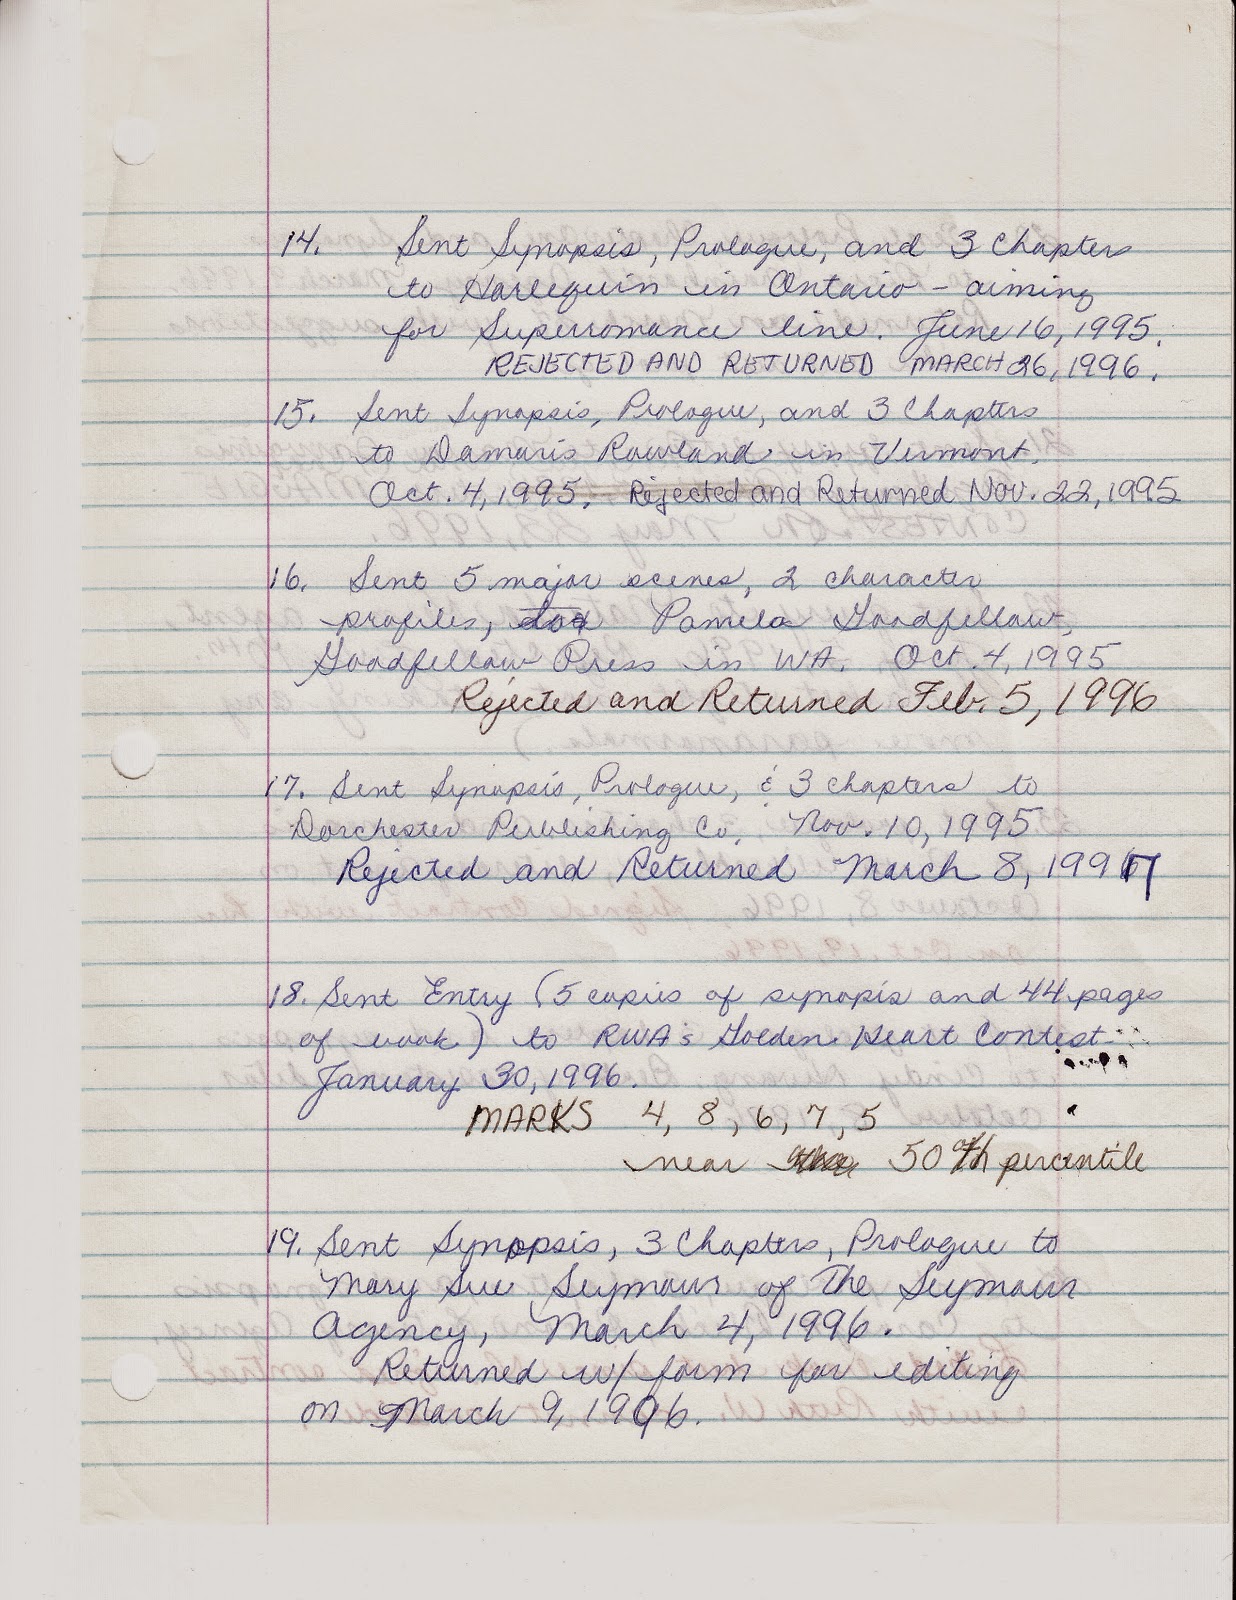 14. Sent Synopsis, Prologue, and 3 Chapters
to Harlequin in Ontario - aiming
for Superromance line. June 16, 1995.
REJECTED AND RETURNED MARCH 26, 1996.
15. Sent Synopsis, Prologue, and 3 Chapters
to Damaris Rowland in Vermont.
Oct. 4, 1995. Rejected and Returned Nov. 22, 1995
16. Sent 5 major scenes, 2 character
profiles, Pamela Goodfellow,
Goodfellow Press in WA. Oct. 4, 1995
Rejected and Returned Feb. 5, 1996
17. Sent Synopsis, Prologue, & 3 chapters to
Dorchester Publishing Co. Nov. 10, 1995
Rejected and Returned March 8, 1997
18. Sent Entry (5 copies of synopis and 44 pages
of work) to RWA's Golden Heart Contest
January 30, 1996.
MARKS 4, 8, 6, 7, 5
near 50th percentile
19. Sent Synopsis, 3 Chapters, Prologue to
Mary Sue Seymour of The Seymour
Agency, March 4, 1996.
Returned w/ form for editing
on March 9, 1996.